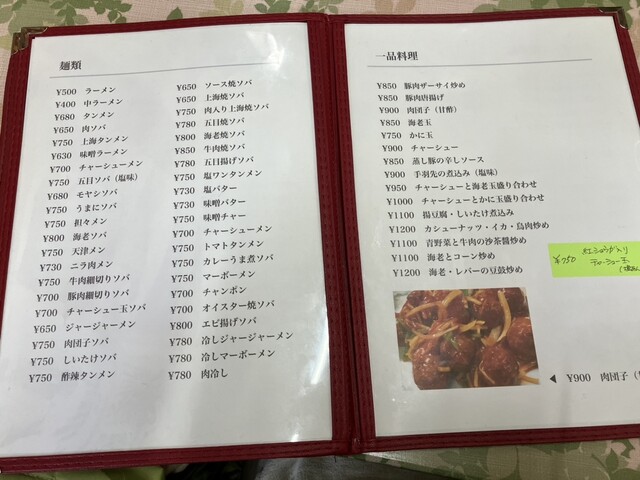 麺類
¥500 ラーメン
¥400 中ラーメン
¥680 タンメン
¥650 肉ソバ
¥750 上海タンメン
¥630 味噌ラーメン
¥700 チャーシューメン
¥750 五目ソバ（塩味）
¥680 モヤシソバ
¥750 うまにソバ
¥750 担々メン
¥800 海老ソバ
¥750 天津メン
¥730 ニラ肉メン
¥750 牛肉細切りソバ
¥700 豚肉細切りソバ
¥700 チャーシュー玉ソバ
¥650 ジャージャーメン
¥750 肉団子ソバ
¥750 しいたけソバ
¥750 酢辣タンメン
¥650 ソース焼ソバ
¥650 上海焼ソバ
¥750 肉入り上海焼ソバ
¥780 五目焼ソバ
¥800 海老焼ソバ
¥850 牛肉焼ソバ
¥780 五目揚げソバ
¥750 塩ワンタンメン
¥730 塩バター
¥730 味噌バター
¥750 味噌チャー
¥700 チャーシューメン
¥750 トマトタンメン
¥750 カレーうま煮ソバ
¥750 マーボーメン
¥700 チャンポン
¥700 オイスター焼ソバ
¥800 エビ揚げソバ
¥780 冷しジャージャーメン
¥780 冷しマーボーメン
¥780 肉冷し
一品料理
¥850 豚肉ザーサイ炒め
¥850 豚肉唐揚げ
¥900 肉団子（甘酢）
¥850 海老玉
¥750 かに玉
¥900 チャーシュー
¥850 蒸し豚の辛しソース
¥900 手羽先の煮込み（塩味）
¥950 チャーシューと海老玉盛り合わせ
¥1000 チャーシューとかに玉盛り合わせ
¥1100 揚豆腐・しいたけ煮込み
¥1200 カシューナッツ・イカ・鳥肉炒め
¥1100 青野菜と牛肉の沙茶醤炒め
¥1100 海老とコーン炒め
¥1200 海老・レバーの豆鼓炒め
紅しょうが入り
¥750 チャーシュー玉
◀ ¥900 肉団子（